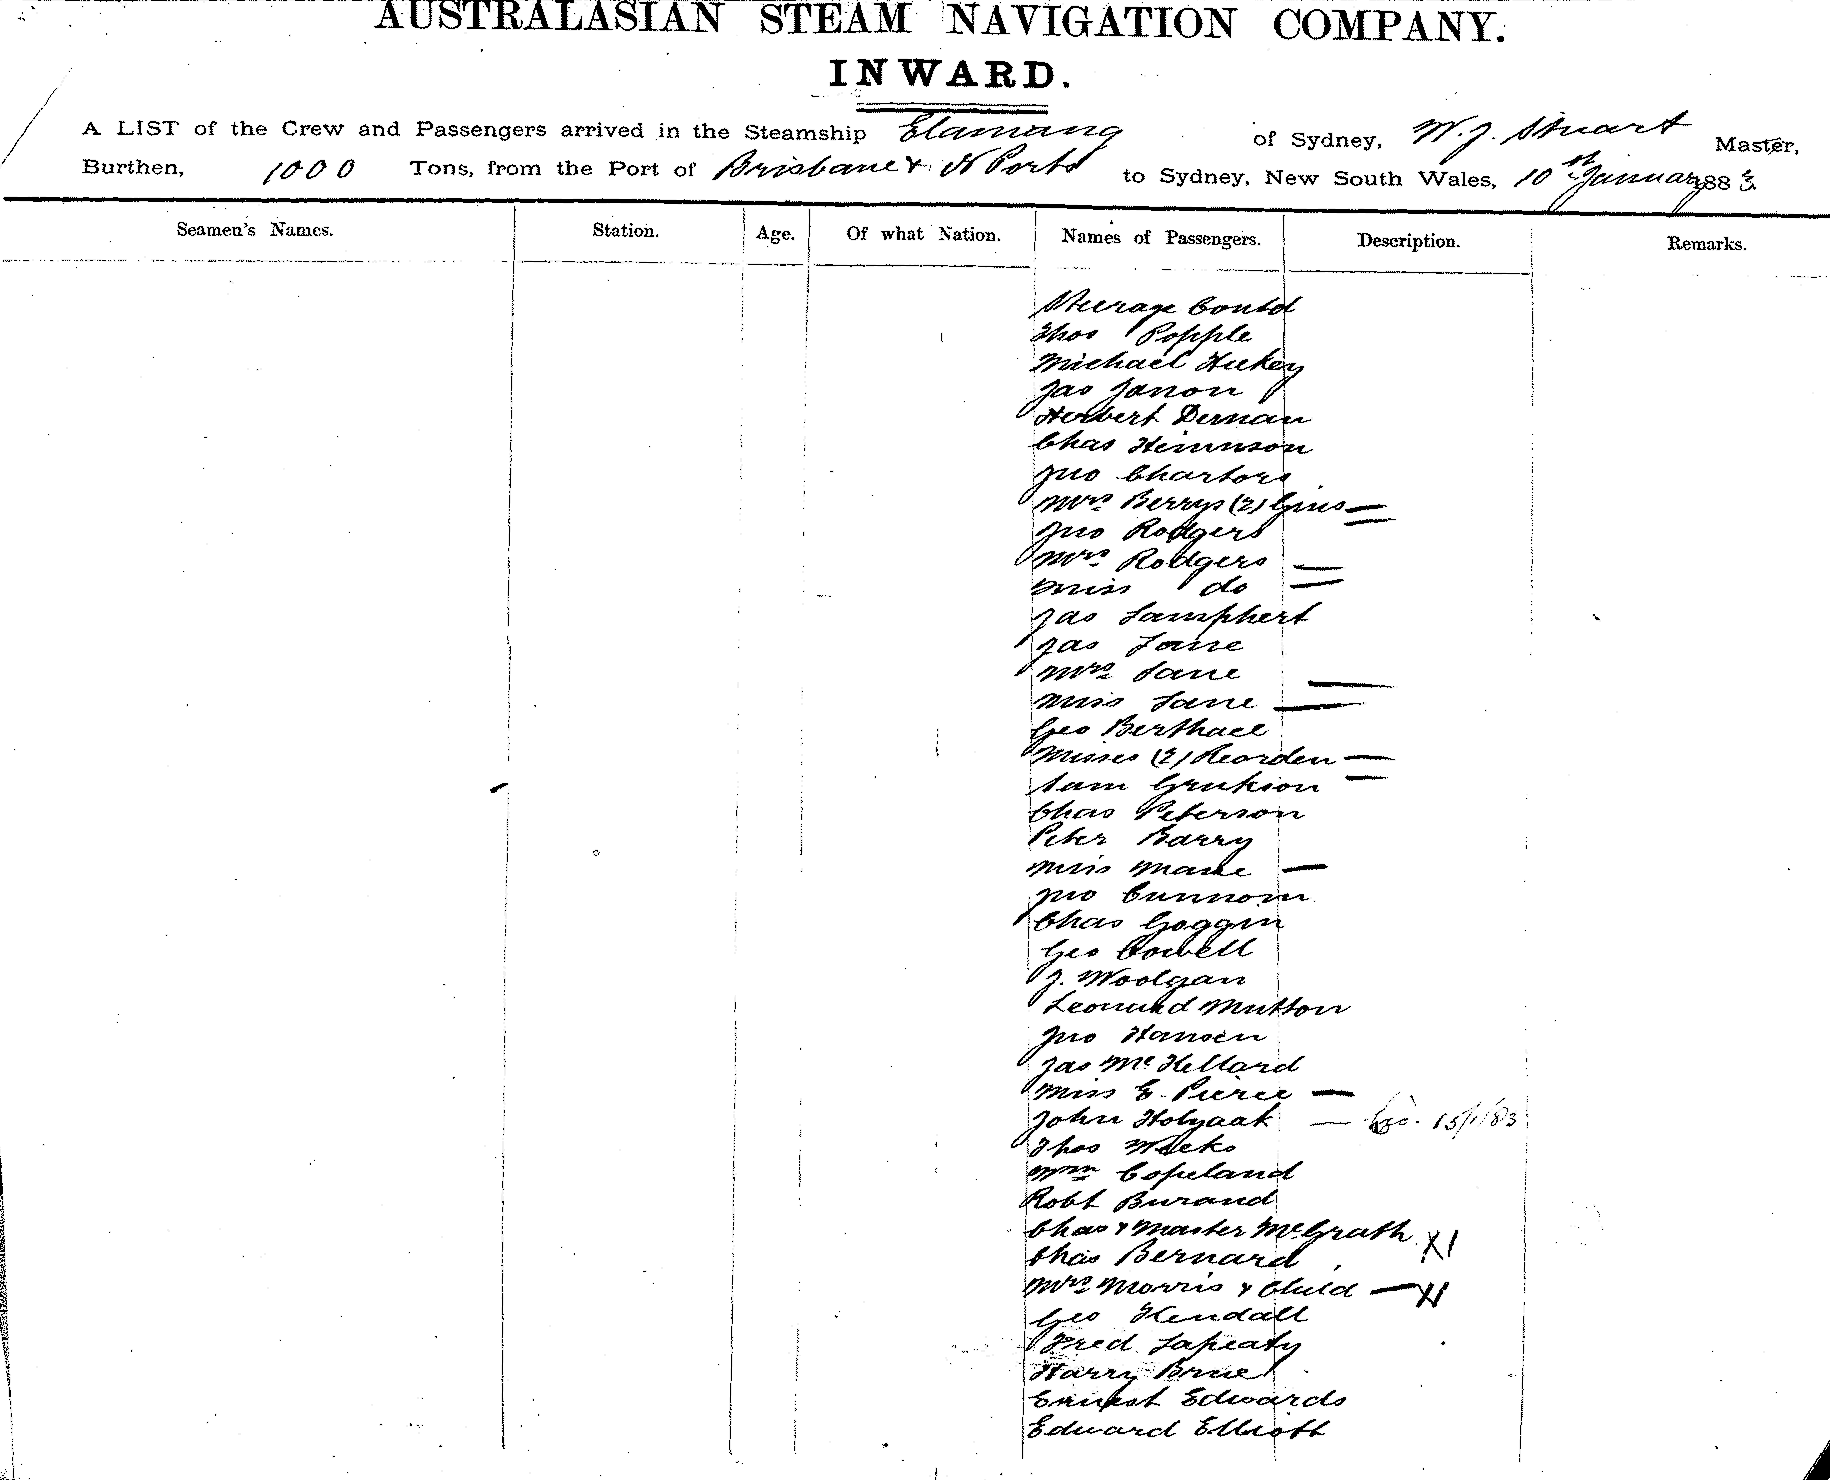 AUSTRALASIAN STEAM NAVIGATION COMPANY.
INWARD.
A LIST of the Crew and Passengers arrived in the Steamship Elamang of Sydney, W. J. Stuart Master,
Burthen, 1000 Tons, from the Port of Brisbane & N Ports to Sydney, New South Wales, 10th January 1883.
Seamen's Names. Station. Age. Of what Nation. Names of Passengers. Description. Remarks.
Steerage Contd
Thos Popple
Michael Hickey
Jas Janon
Herbert Dernan
Chas
Jno Chartors
Mrs Berrys (2)
Jno Rodgers
Mrs Rodgers
Miss do
Jas Lamphert
Jas Lane
Mrs Lane
Miss Lane
Geo Berthael
Misses (2) Reorden
Sam
Chas Peterson
Peter Barry
Miss
Jno
Chas Goggin
Geo Cowell
J. Woolgan
Leonard Mutton
Jno Hansen
Jas McKellard
Miss E. Pierce
John Holyoak 15/1/83
Thos Weeks
Wm Copeland
Robt Burand
Chas & Master McGrath
Chas Bernard
Mrs Morris & Child
Geo Kendall
Fred Lapeaty
Harry
Ernest Edwards
Edward Elliott